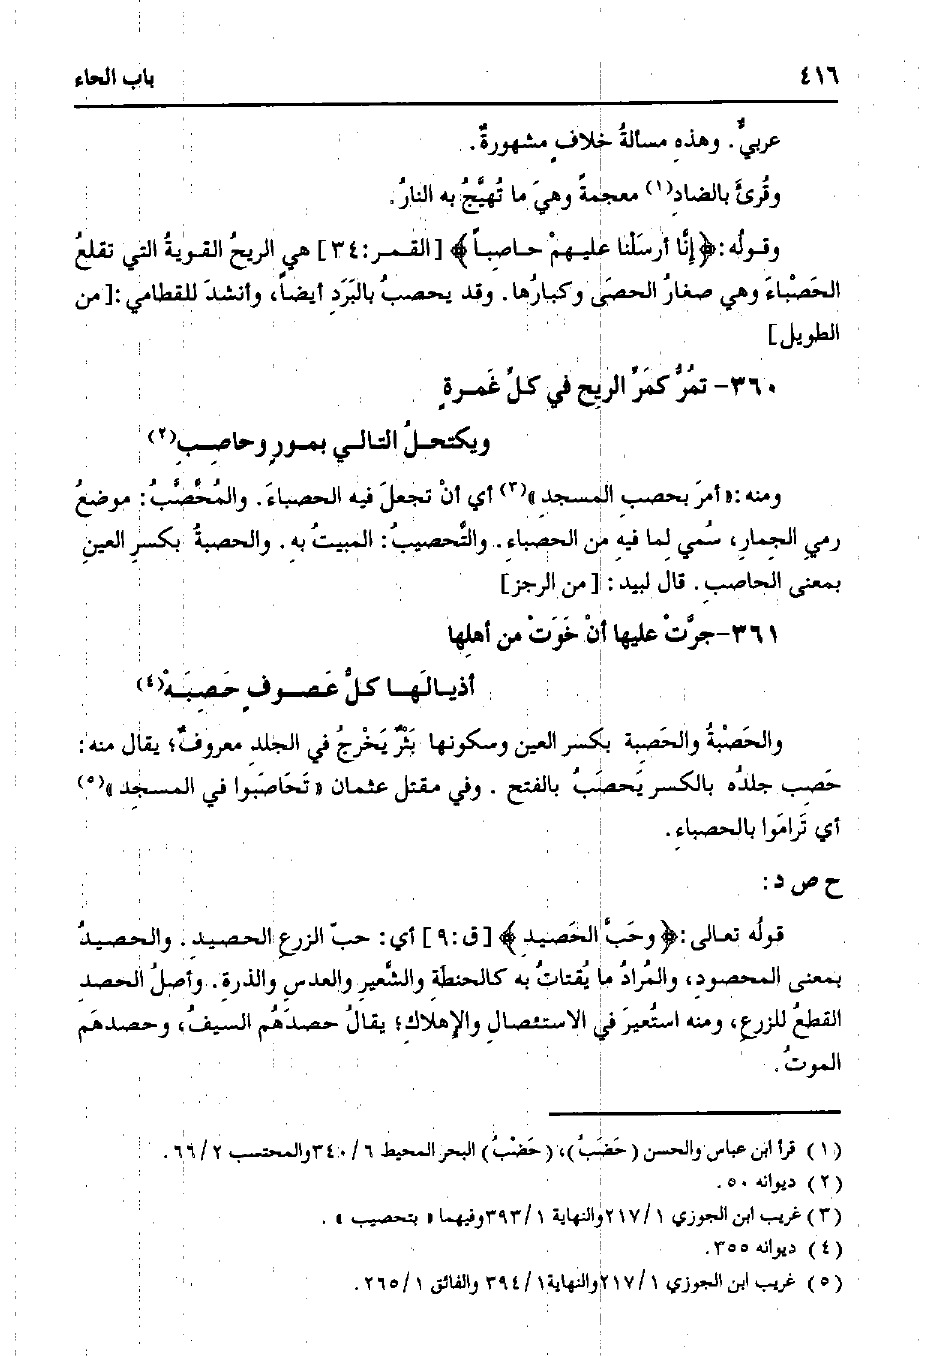 ٤١٦ باب الحاء
عربيٌّ. وهذهِ مسألةُ خلافٍ مشهورةٌ.
وقُرئَ بالضادِ(١) معجمةً وهيَ ما تُهيَّجُ به النارُ.
وقـولُه: ﴿إنَّا أرسَلْنا عليـهمْ حـاصِبـاً﴾ [القـمـر: ٣٤] هي الريحُ القـويةُ التي تقلعُ
الحَصْباءَ وهي صغارُ الحصَى وكبارُها. وقد يحصبُ بالبَرَدِ أيضاً، وأنشدَ للقطامي: [من
الطويل]
٣٦٠- تمُرُّ كمَرِّ الريحِ في كلِّ غَمـرةٍ
ويكتحـلُ التالـي بمـورٍ وحاصـبِ(٢)
ومنه: « أمرَ بحصبِ المسجدِ »(٣) أي أنْ تجعلَ فيه الحصباءَ. والمُحَصَّبُ: موضعُ
رمي الجمارِ، سُمي لما فيهِ من الحصباءِ. والتَّحصيبُ: المبيتُ بهِ. والحصبةُ بكسرِ العينِ
بمعنى الحاصبِ. قال لبيد: [من الرجز]
٣٦١-جرَّتْ عليها أنْ خَوَتْ من أهلِها
أذيـالَـهـا كلُّ عَـصـوفٍ حَـصِبَـهْ(٤)
والحَصْبةُ والحَصِبة بكسر العين وسكونها بَثْرٌ يَخْرجُ في الجلدِ معروفٌ؛ يقال منه:
حَصِب جلدُه بالكسر يَحصَبُ بالفتح . وفي مقتل عثمان « تَحَاصَبوا في المسجد »(٥)
أي تَرامَوا بالحصباءِ.
ح ص د:
قولُه تعالى: ﴿وحَبَّ الحَصيدِ﴾ [ق: ٩] أي: حبّ الزرعِ الحصيدِ. والحصيدُ
بمعنى المحصودِ، والمُرادُ ما يُقتاتُ به كالحنطَةِ والشَّعيرِ والعدسِ والذرةِ. وأصلُ الحصدِ
القطعُ للزرعِ، ومنه استُعيرَ في الاستئصالِ والإهلاكِ؛ يقالُ حصدَهُم السيفُ، وحصدهَم
الموتُ.
(١) قرأ ابن عباس والحسن (حَضَبُ)، (حَضْبُ) البحر المحيط ٦/ ٣٤٠ والمحتسب ٢/ ٦٦.
(٢) ديوانه ٥٠.
(٣) غريب ابن الجوزي ١/ ٢١٧ والنهاية ١/ ٣٩٣ وفيهما « بتحصيب ».
(٤) ديوانه ٣٥٥.
(٥) غريب ابن الجوزي ١/ ٢١٧ والنهاية ١/ ٣٩٤ والفائق ١/ ٢٦٥.